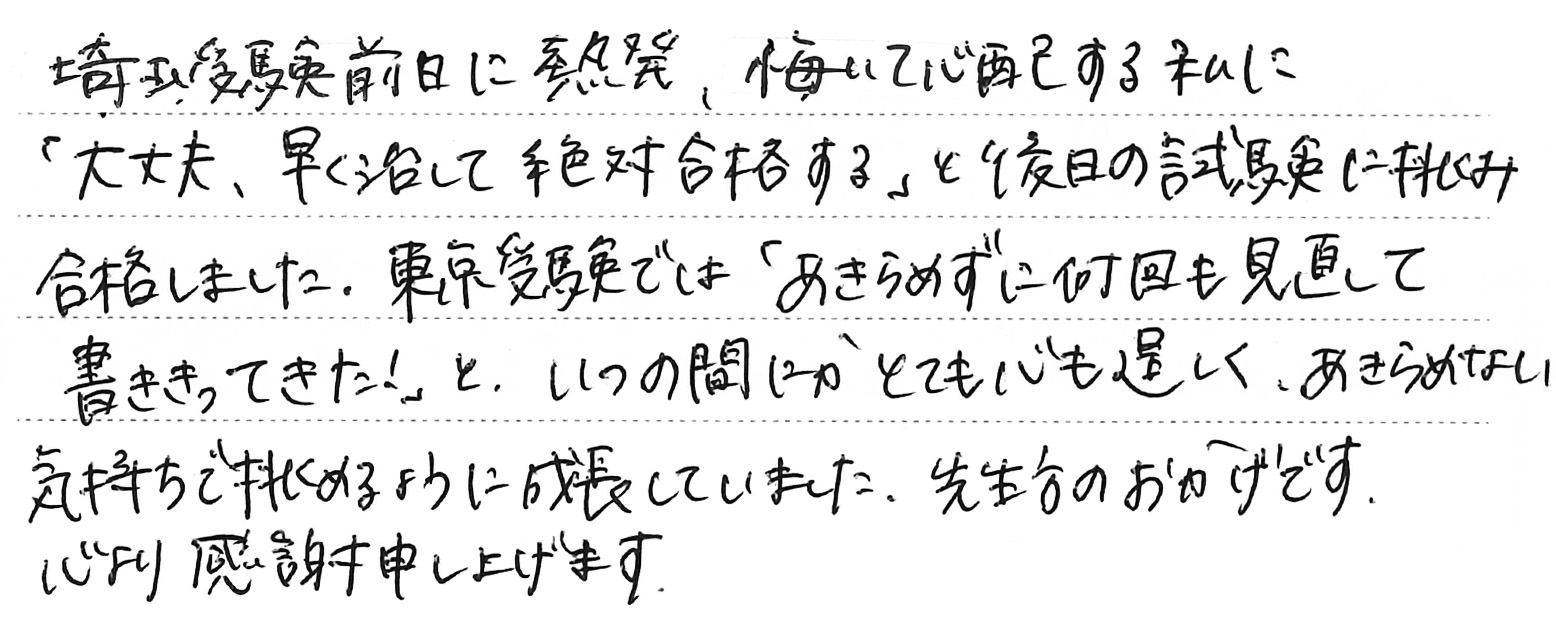 埼玉受験前日に熱発、悔いて心配する私に
「大丈夫、早く治して絶対合格する」と後日の試験に挑み
合格しました。東京受験では「あきらめずに何回も見直して
書ききってきた!」と、いつの間にかとても心も逞しく、あきらめない
気持ちで挑めるように成長していました。先生方のおかげです。
心より感謝申し上げます。